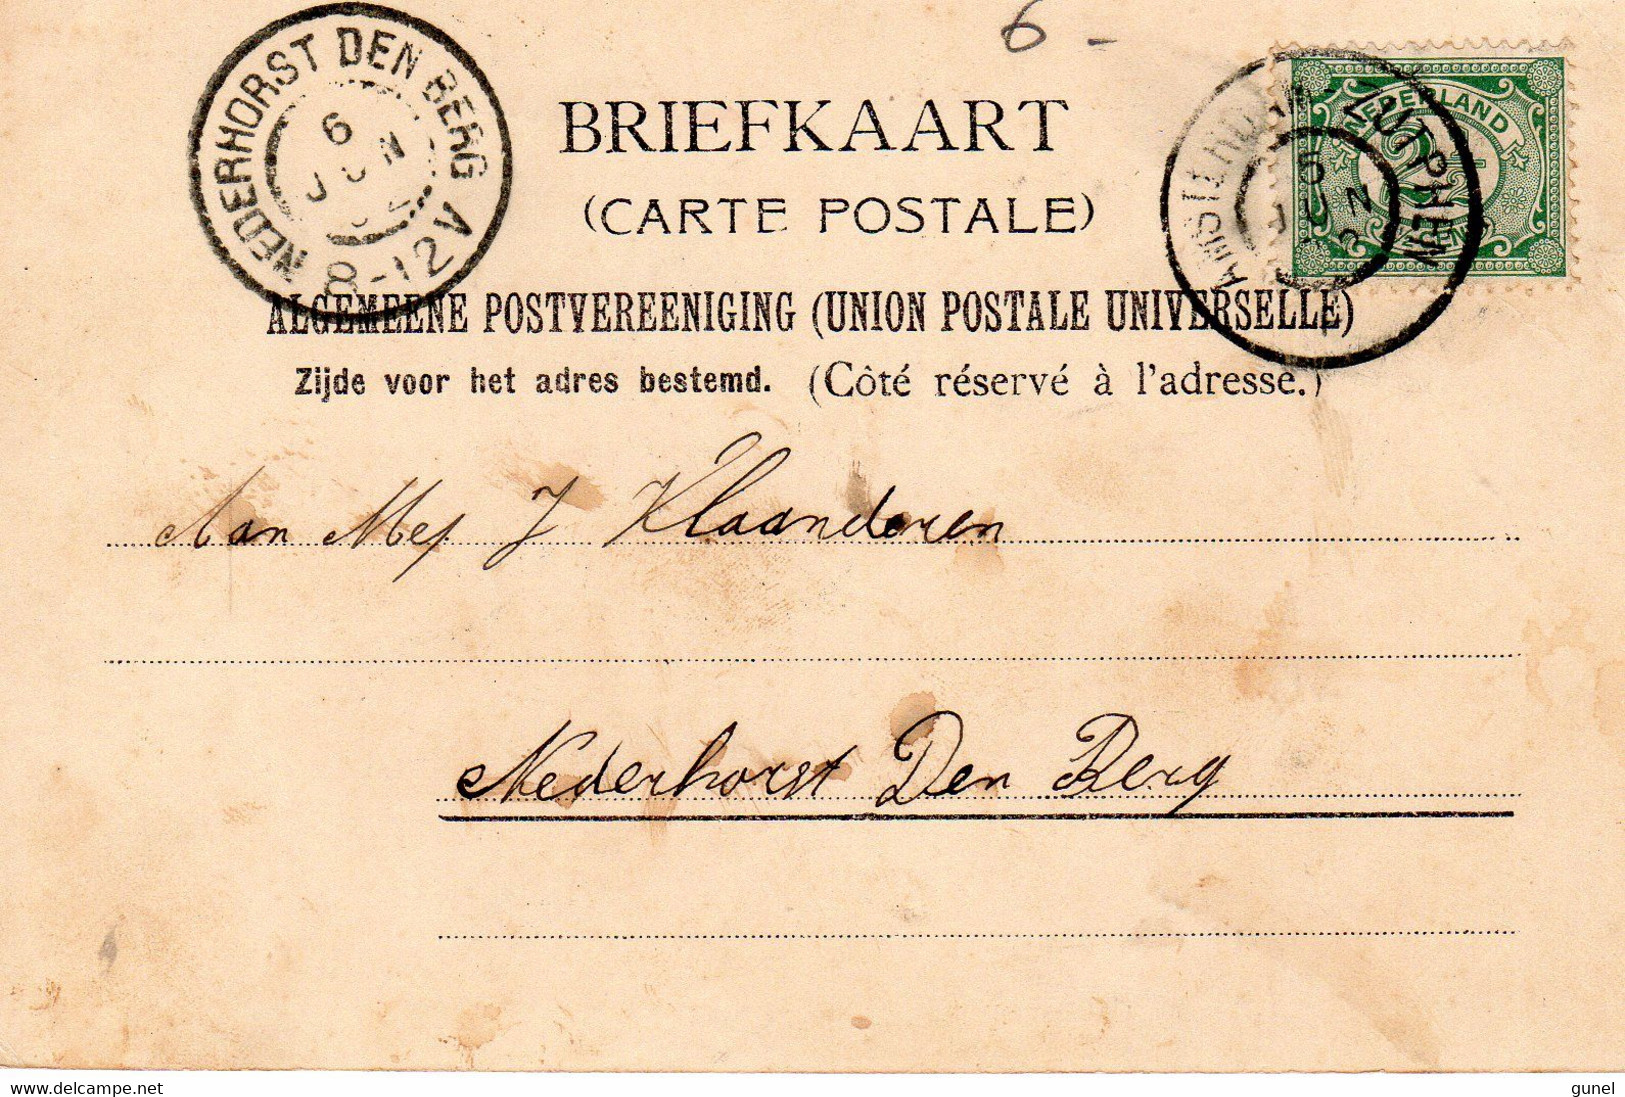 6 -
NEDERHORST DEN BERG
6
JUN
8-12V
BRIEFKAART
(CARTE POSTALE)
ZUTPHEN
5
JUN
NEDERLAND
2½
ALGEMEENE POSTVEREENIGING (UNION POSTALE UNIVERSELLE)
Zijde voor het adres bestemd. (Côté réservé à l'adresse.)
Aan Mej J Klaanderen
Nederhorst Den Berg
www.delcampe.net
gunel